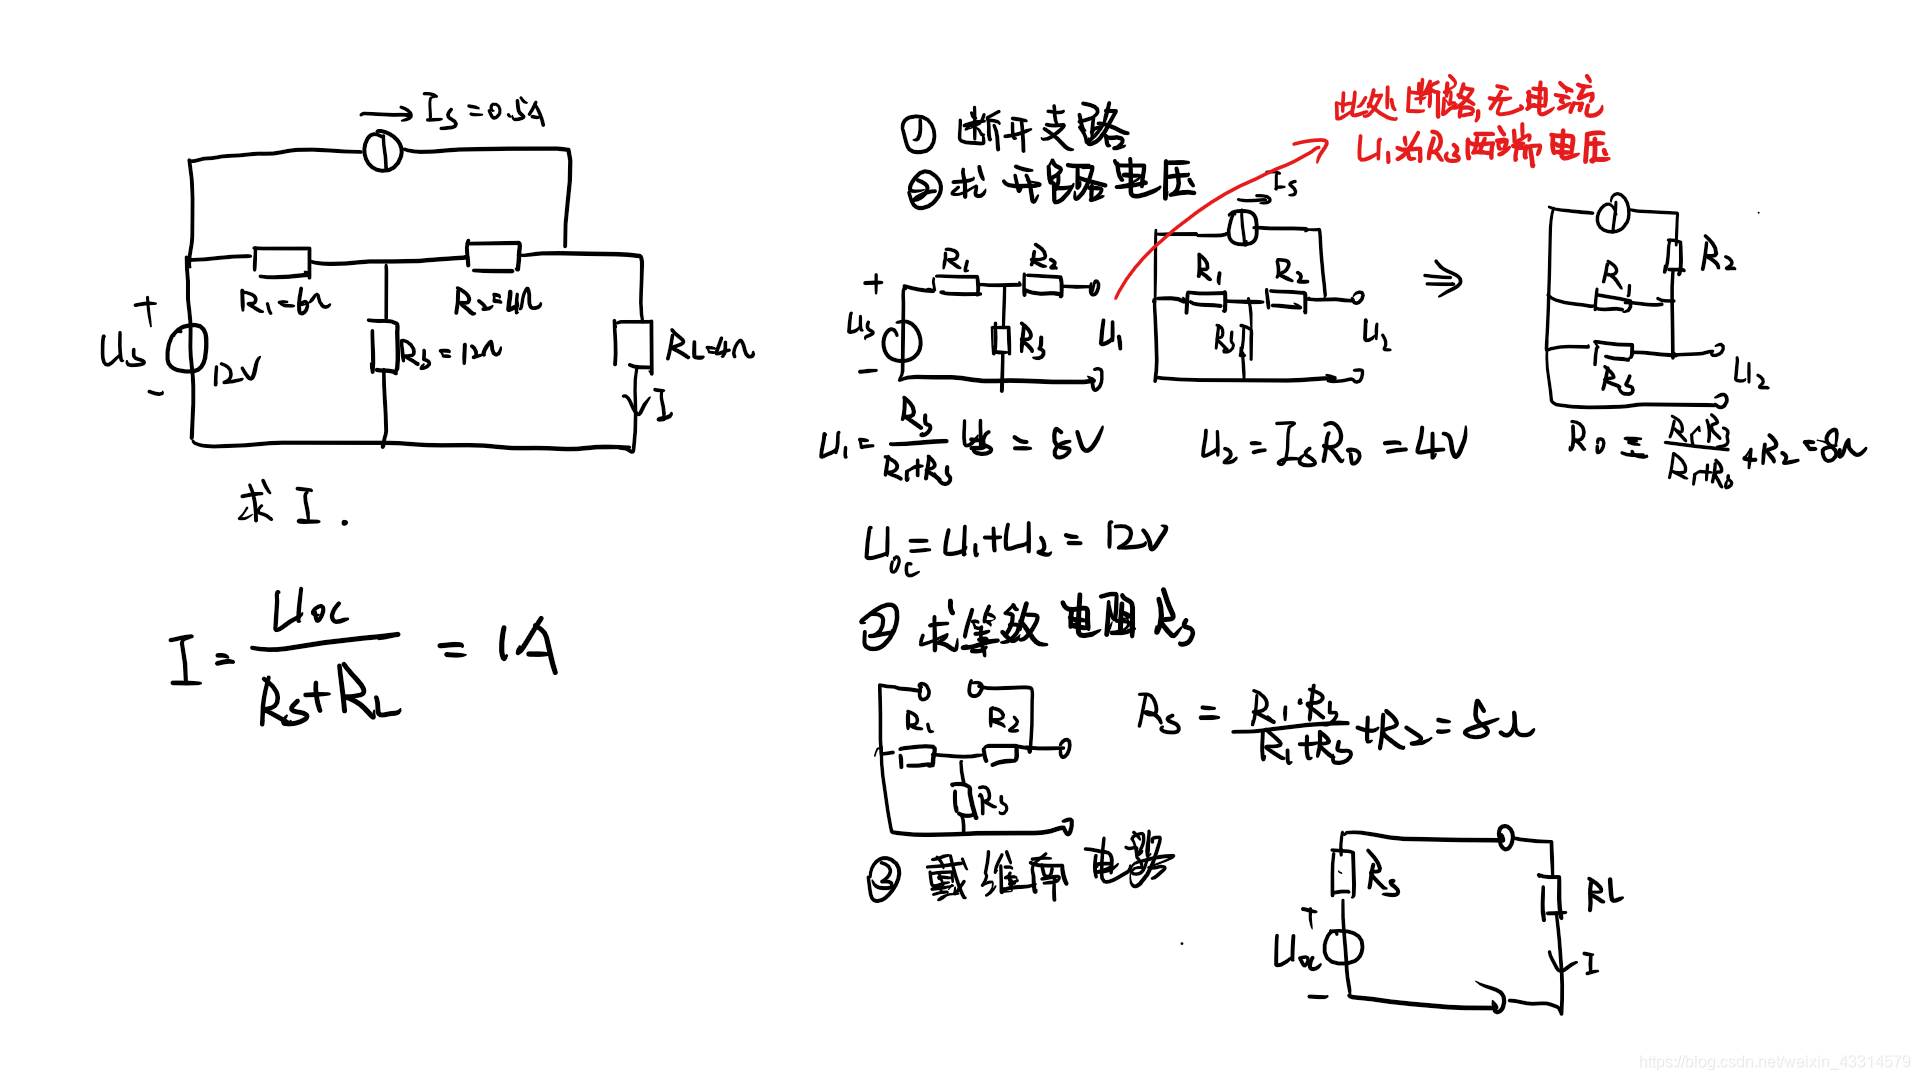 I_S=0.5A
R₁=6Ω
R₂=4Ω
+
U_S
12V
-
R₃=12Ω
R_L=4Ω
I
求 I.
I = U_OC / (R_S+R_L) = 1A
① 断开支路
② 求 开路电压
此处断路,无电流
U₁为R₃两端电压
+
U_S
-
R₁
R₂
R₃
U₁
I_S
R₁
R₂
R₃
U₂
⇒
R₂
R₁
R₃
U₂
U₁ = R₃ / (R₁+R₃) U_S = 8V
U₂ = I_S R_0 = 4V
R_0 = R₁·R₃ / (R₁+R₃) + R₂ = 8Ω
U_OC = U₁+U₂ = 12V
② 求等效电阻 R_S
R₁
R₂
R₃
R_S = R₁·R₃ / (R₁+R₃) + R₂ = 8Ω
③ 戴维南 电路
R_S
+
U_OC
-
RL
I
https://blog.csdn.net/weixin_43314579